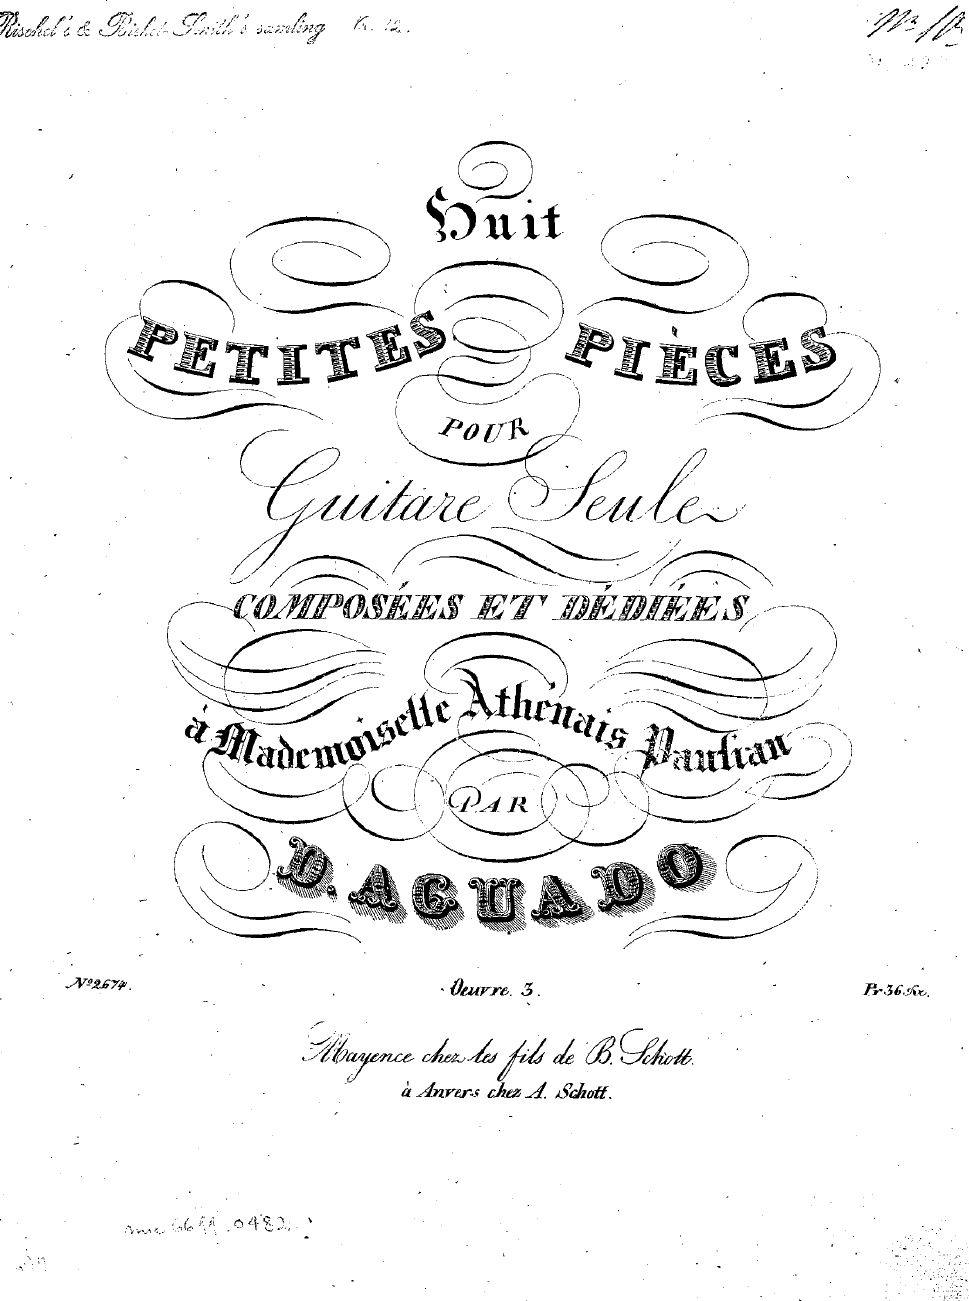 Rischel's & Birket-Smith's samling
Huit
PETITES PIÈCES
POUR
Guitare Seule
COMPOSÉES ET DÉDIÉES
à Mademoiselle Athénais Paulian
PAR
D. AGUADO
No 2674. Oeuvre. 3. Pr 36 Xr.
Mayence chez les fils de B. Schott.
à Anvers chez A. Schott.